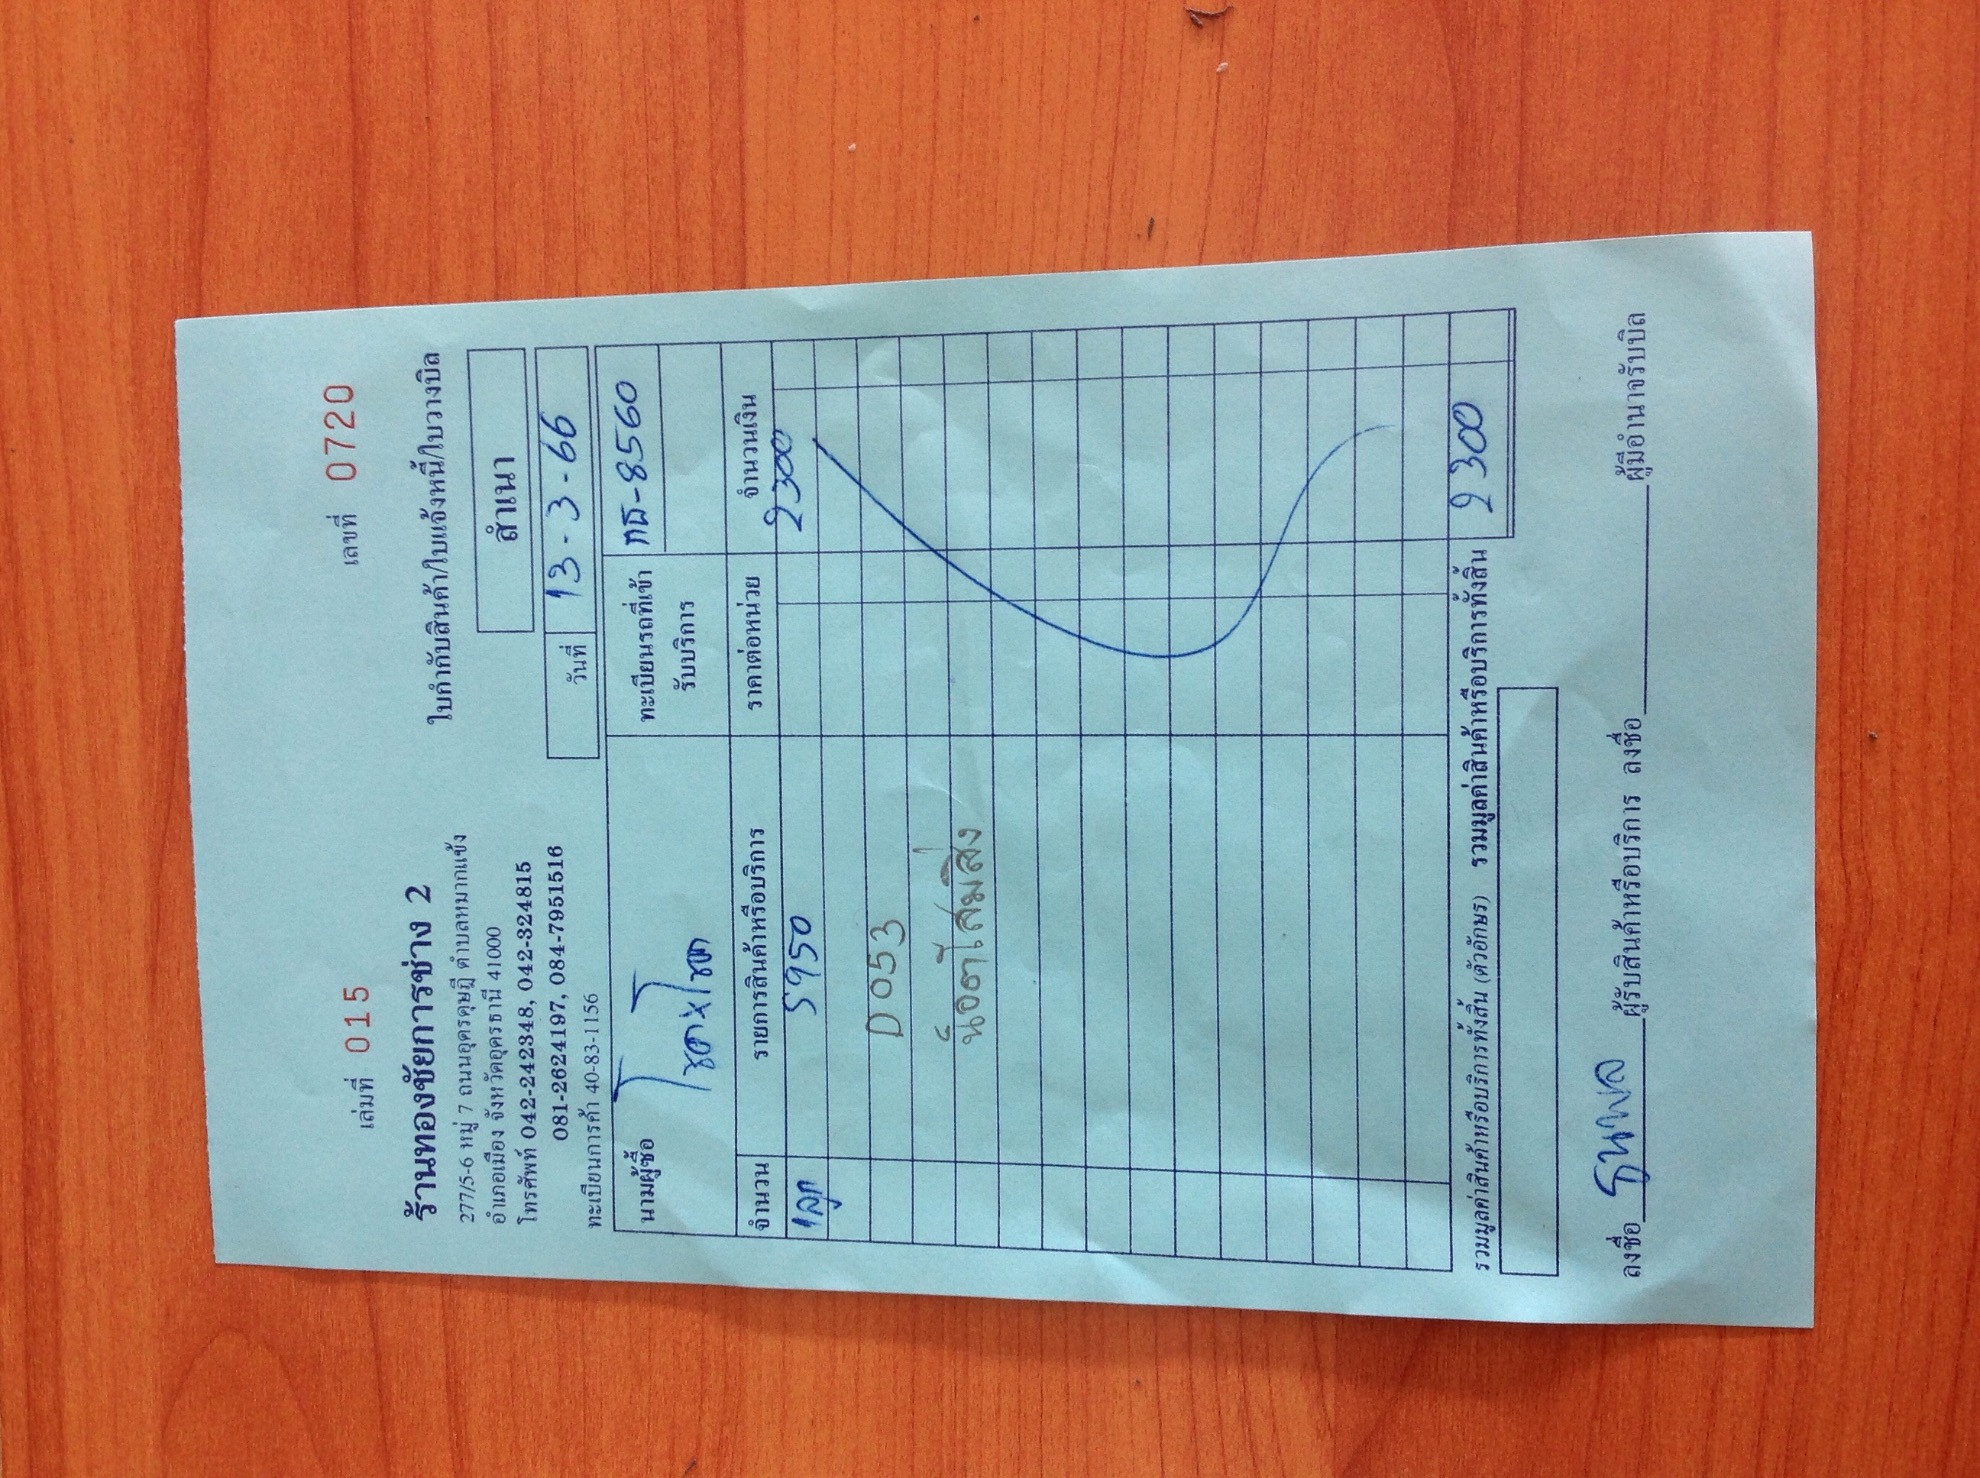 เล่มที่ 015
เลขที่ 0720
ร้านทองชัยการช่าง 2
277/5-6 หมู่ 7 ถนนอุดรดุษฎี ตำบลหมากแข้ง
อำเภอเมือง จังหวัดอุดรธานี 41000
โทรศัพท์ 042-242348, 042-324815
081-2624197, 084-7951516
ทะเบียนการค้า 40-83-1156
ใบกำกับสินค้า/ใบแจ้งหนี้/ใบวางบิล
สำเนา
วันที่ 13-3-66
นามผู้ซื้อ
ทะเบียนรถที่เข้ารับบริการ -8560
จำนวน รายการสินค้าหรือบริการ ราคาต่อหน่วย จำนวนเงิน
1ลูก 5950 2300
D053
น็อตไสมสิง
รวมมูลค่าสินค้าหรือบริการทั้งสิ้น (ตัวอักษร) รวมมูลค่าสินค้าหรือบริการทั้งสิ้น 2300
ลงชื่อ ธนพล ผู้รับสินค้าหรือบริการ ลงชื่อ ผู้มีอำนาจรับบิล